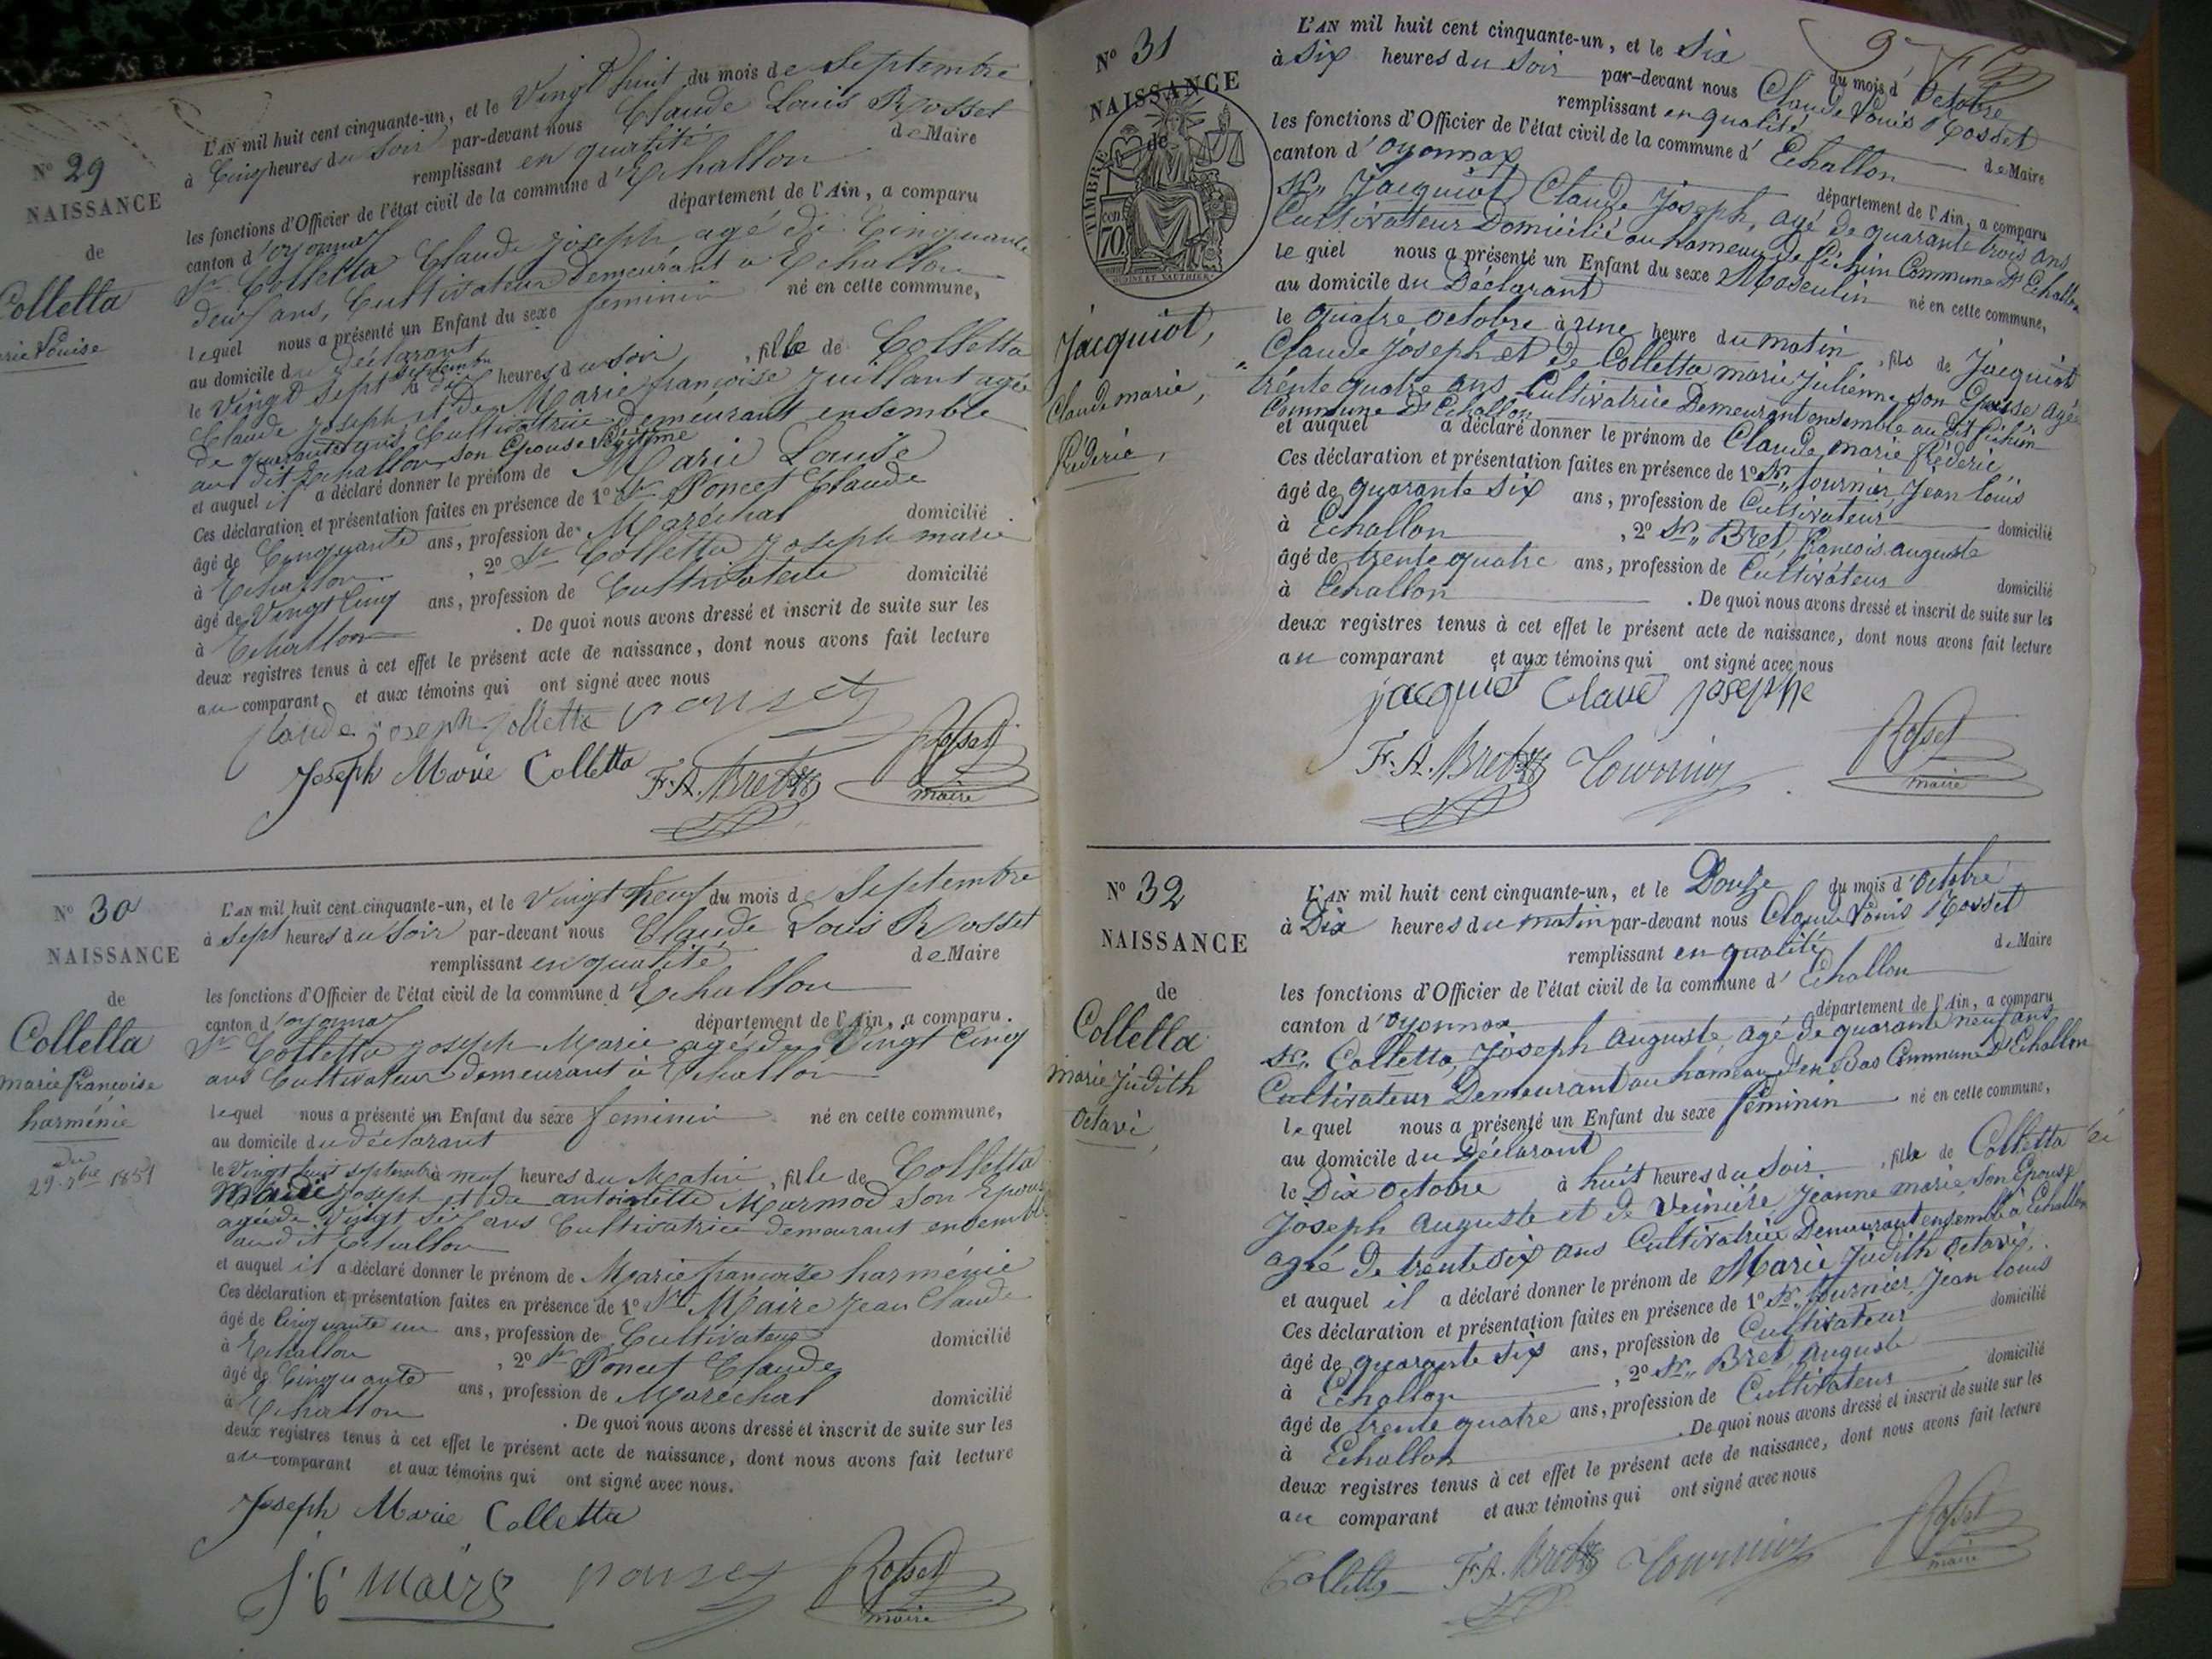 N° 29
NAISSANCE
de
Colletta
Marie Louise
L'AN mil huit cent cinquante-un, et le Vingt huit du mois de Septembre
à Cinq heures du Soir par-devant nous Claude Louis Rosset
remplissant en qualité de Maire
les fonctions d'Officier de l'état civil de la commune d'Echallon
canton d'oyonnax département de l'Ain, a comparu
Sr Colletta Claude Joseph, agé de Cinquante
deux ans, Cultivateur demeurant a Echallon
lequel nous a présenté un Enfant du sexe feminin né en cette commune,
au domicile du déclarant
le Vingt Sept Septembre à dix heures du soir, fille de Colletta
Claude Joseph et de Marie françoise Juillard agée
de quarante Cultivatrice demeurant ensemble
au dit Echallon son Epouse légitime
et auquel il a déclaré donner le prénom de Marie Louise
Ces déclaration et présentation faites en présence de 1° Sr Poncet Claude
âgé de Cinquante ans, profession de Maréchal domicilié
à Echallon, 2° Sr Colletta Joseph marie
âgé de Vingt Cinq ans, profession de Cultivateur domicilié
à Echallon. De quoi nous avons dressé et inscrit de suite sur les
deux registres tenus à cet effet le présent acte de naissance, dont nous avons fait lecture
au comparant et aux témoins qui ont signé avec nous
Claude joseph Colletta ponset
Joseph Marie Colletta F. A. Bret Rosset
maire
N° 30
NAISSANCE
de
Colletta
marie françoise
harménie
du
29 7bre 1851
L'AN mil huit cent cinquante-un, et le Vingt Neuf du mois de Septembre
à Sept heures du Soir par-devant nous Claude Louis Rosset
remplissant en qualité de Maire
les fonctions d'Officier de l'état civil de la commune d'Echallon
canton d'oyonnax département de l'Ain, a comparu.
Sr Colletta Joseph Marie agé de Vingt Cinq
ans Cultivateur demeurant à Echallon
lequel nous a présenté un Enfant du sexe feminin né en cette commune,
au domicile du déclarant
le Vingt huit septembre à neuf heures du Matin, fille de Colletta
Joseph et de antoinette Marmod son Epouse
agée de Vingt Six ans Cultivatrice demeurant ensemble
au dit Echallon
et auquel il a déclaré donner le prénom de Marie françoise harménie
Ces déclaration et présentation faites en présence de 1° Sr Maire Jean Claude
âgé de Cinquante un ans, profession de Cultivateur domicilié
à Echallon, 2° Sr Poncet Claude
âgé de Cinquante ans, profession de Maréchal domicilié
à Echallon. De quoi nous avons dressé et inscrit de suite sur les
deux registres tenus à cet effet le présent acte de naissance, dont nous avons fait lecture
au comparant et aux témoins qui ont signé avec nous.
Joseph Marie Colletta
J. C. Maire ponset Rosset
maire
9
N° 31
NAISSANCE
de
TIMBRE
70 cen
Jacquiot,
Claude marie,
fréderic,
L'AN mil huit cent cinquante-un, et le Six du mois d'Octobre
à Six heures du Soir par-devant nous Claude Louis Rosset
remplissant en qualité de Maire
les fonctions d'Officier de l'état civil de la commune d'Echallon
canton d'Oyonnax département de l'Ain, a comparu
Sr Jacquiot, Claude Joseph, agé de quarante trois ans
Cultivateur Domicilié au hameau de Commune D'Echallon
lequel nous a présenté un Enfant du sexe Masculin né en cette commune,
au domicile du Déclarant
le quatre Octobre à une heure du matin, fils de Jacquiot
Claude Joseph et de Colletta marie Julienne, son Epouse agée
trente quatre ans Cultivatrice Demeurant ensemble au dit
Commune D'Echallon
et auquel a déclaré donner le prénom de Claude marie fréderic
Ces déclaration et présentation faites en présence de 1° Sr fournier Jean louis
âgé de quarante Six ans, profession de Cultivateur domicilié
à Echallon, 2° Sr Bret, françois auguste
âgé de trente quatre ans, profession de Cultivateur domicilié
à Echallon. De quoi nous avons dressé et inscrit de suite sur les
deux registres tenus à cet effet le présent acte de naissance, dont nous avons fait lecture
au comparant et aux témoins qui ont signé avec nous
jacquiot Claude josephe
F. A. Bret Tournier Rosset
maire
N° 32
NAISSANCE
de
Colletta
marie Judith
Octavi
L'AN mil huit cent cinquante-un, et le Douze du mois d'Octobre
à Dix heures du matin par-devant nous Claude Louis Rosset
remplissant en qualité de Maire
les fonctions d'Officier de l'état civil de la commune d'Echallon
canton d'Oyonnax département de l'Ain, a comparu
Sr Colletta, Joseph auguste, agé de quarante neuf ans
Cultivateur Demeurant au hameau d'en Bas Commune D'Echallon
lequel nous a présenté un Enfant du sexe féminin né en cette commune,
au domicile du Déclarant
le Dix Octobre à huit heures du Soir, fille de Colletta
Joseph Auguste et de Jeanne marie, Son Epouse
agée de trente six ans Cultivatrice Demeurant ensemble à Echallon
et auquel il a déclaré donner le prénom de Marie Judith Octavi
Ces déclaration et présentation faites en présence de 1° Sr fournier, Jean louis
âgé de quarante six ans, profession de Cultivateur domicilié
à Echallon, 2° Sr Bret, auguste
âgé de trente quatre ans, profession de Cultivateur domicilié
à Echallon. De quoi nous avons dressé et inscrit de suite sur les
deux registres tenus à cet effet le présent acte de naissance, dont nous avons fait lecture
au comparant et aux témoins qui ont signé avec nous
Colletta F. A. Bret Tournier Rosset
maire